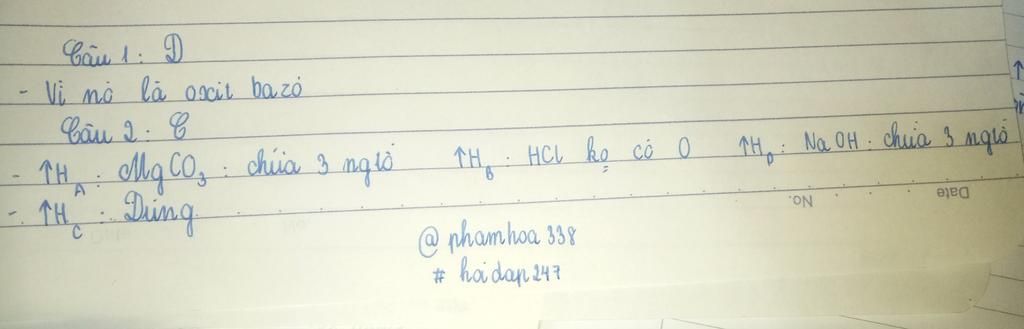 Câu 1: D
- Vì nó là oxit bazơ
Câu 2: C
- ↑H_A: MgCO₃: chứa 3 ngtố ↑H_B: HCl ko có O ↑H_D: NaOH: chứa 3 ngtố
- ↑H_C: Đúng
Date
No.
@phamhoa338
# hoidap247